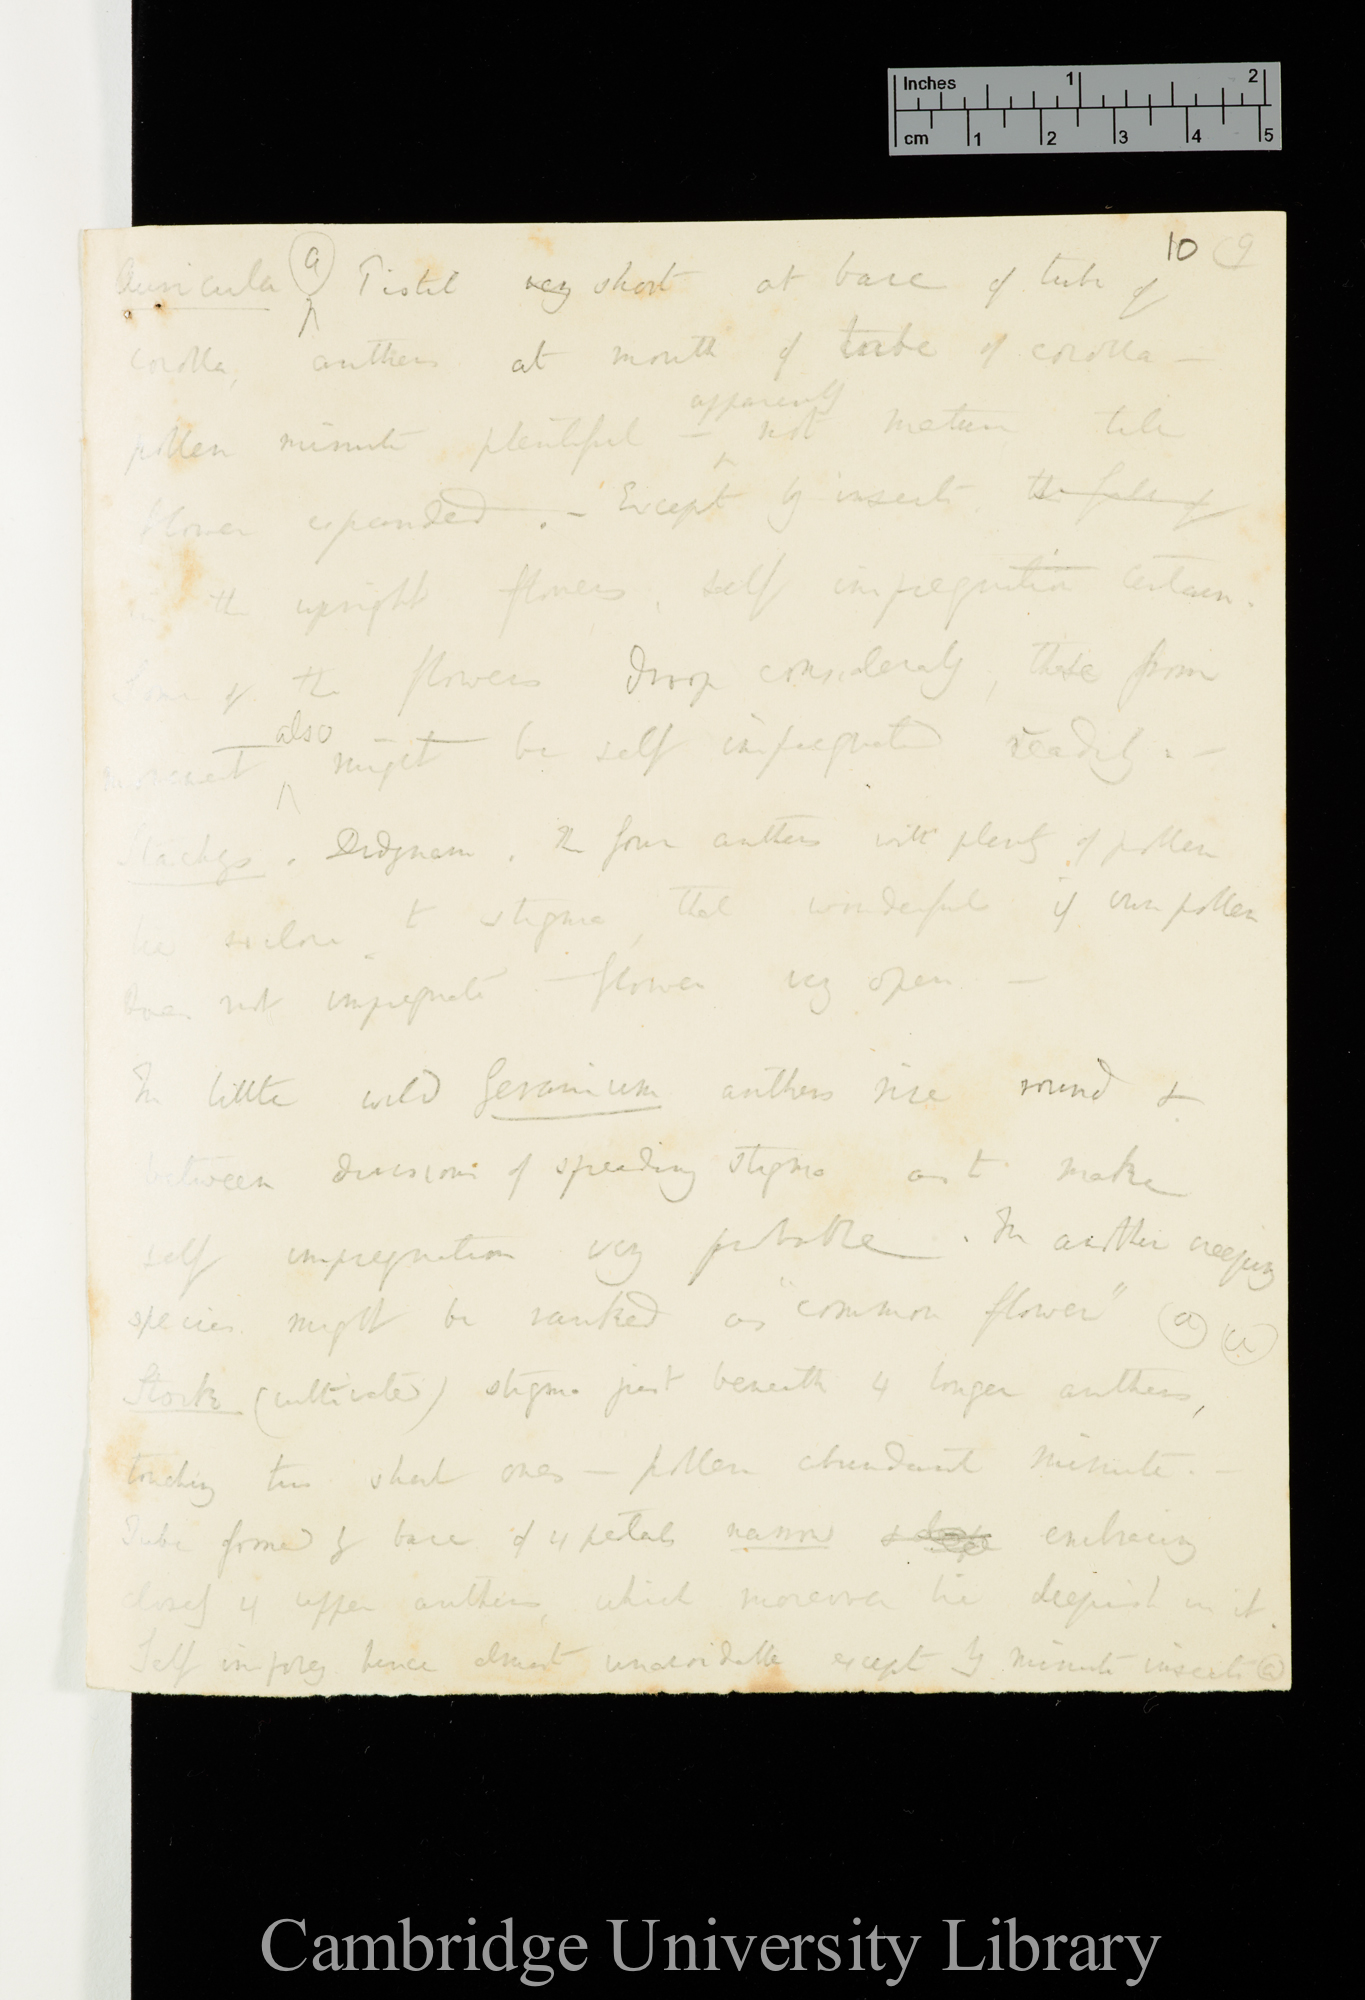 Inches 1 2
cm 1 2 3 4 5
10 (9
Auricula (a) Pistil very short at base of tube of
corolla, anthers at mouth of tube of corolla —
apparently
pollen minute plentiful — not mature till
flower expanded . — Except by insects, the fall of
in the upright flowers, self impregnation certain.
Some of the flowers droop considerably, these from
also
movement might be self impregnated readily. —
Stachys. Didynam. The four anthers with plenty of pollen
lie so close to stigma, that wonderful if own pollen
does not impregnate — flower very open —
In little wild Geranium anthers rise round &
between divisions of spreading stigma as to make
self impregnation very probable. In another creeping
species might be ranked as "common flower" (a) (a)
Stock (cultivated) stigma just beneath 4 longer anthers,
touching two short ones — pollen abundant minute. —
Tube formed by base of 4 petals narrow & embracing
closely 4 upper anthers, which moreover lie deepish in it.
Self impreg hence almost unavoidable except by minute insects (a)
Cambridge University Library